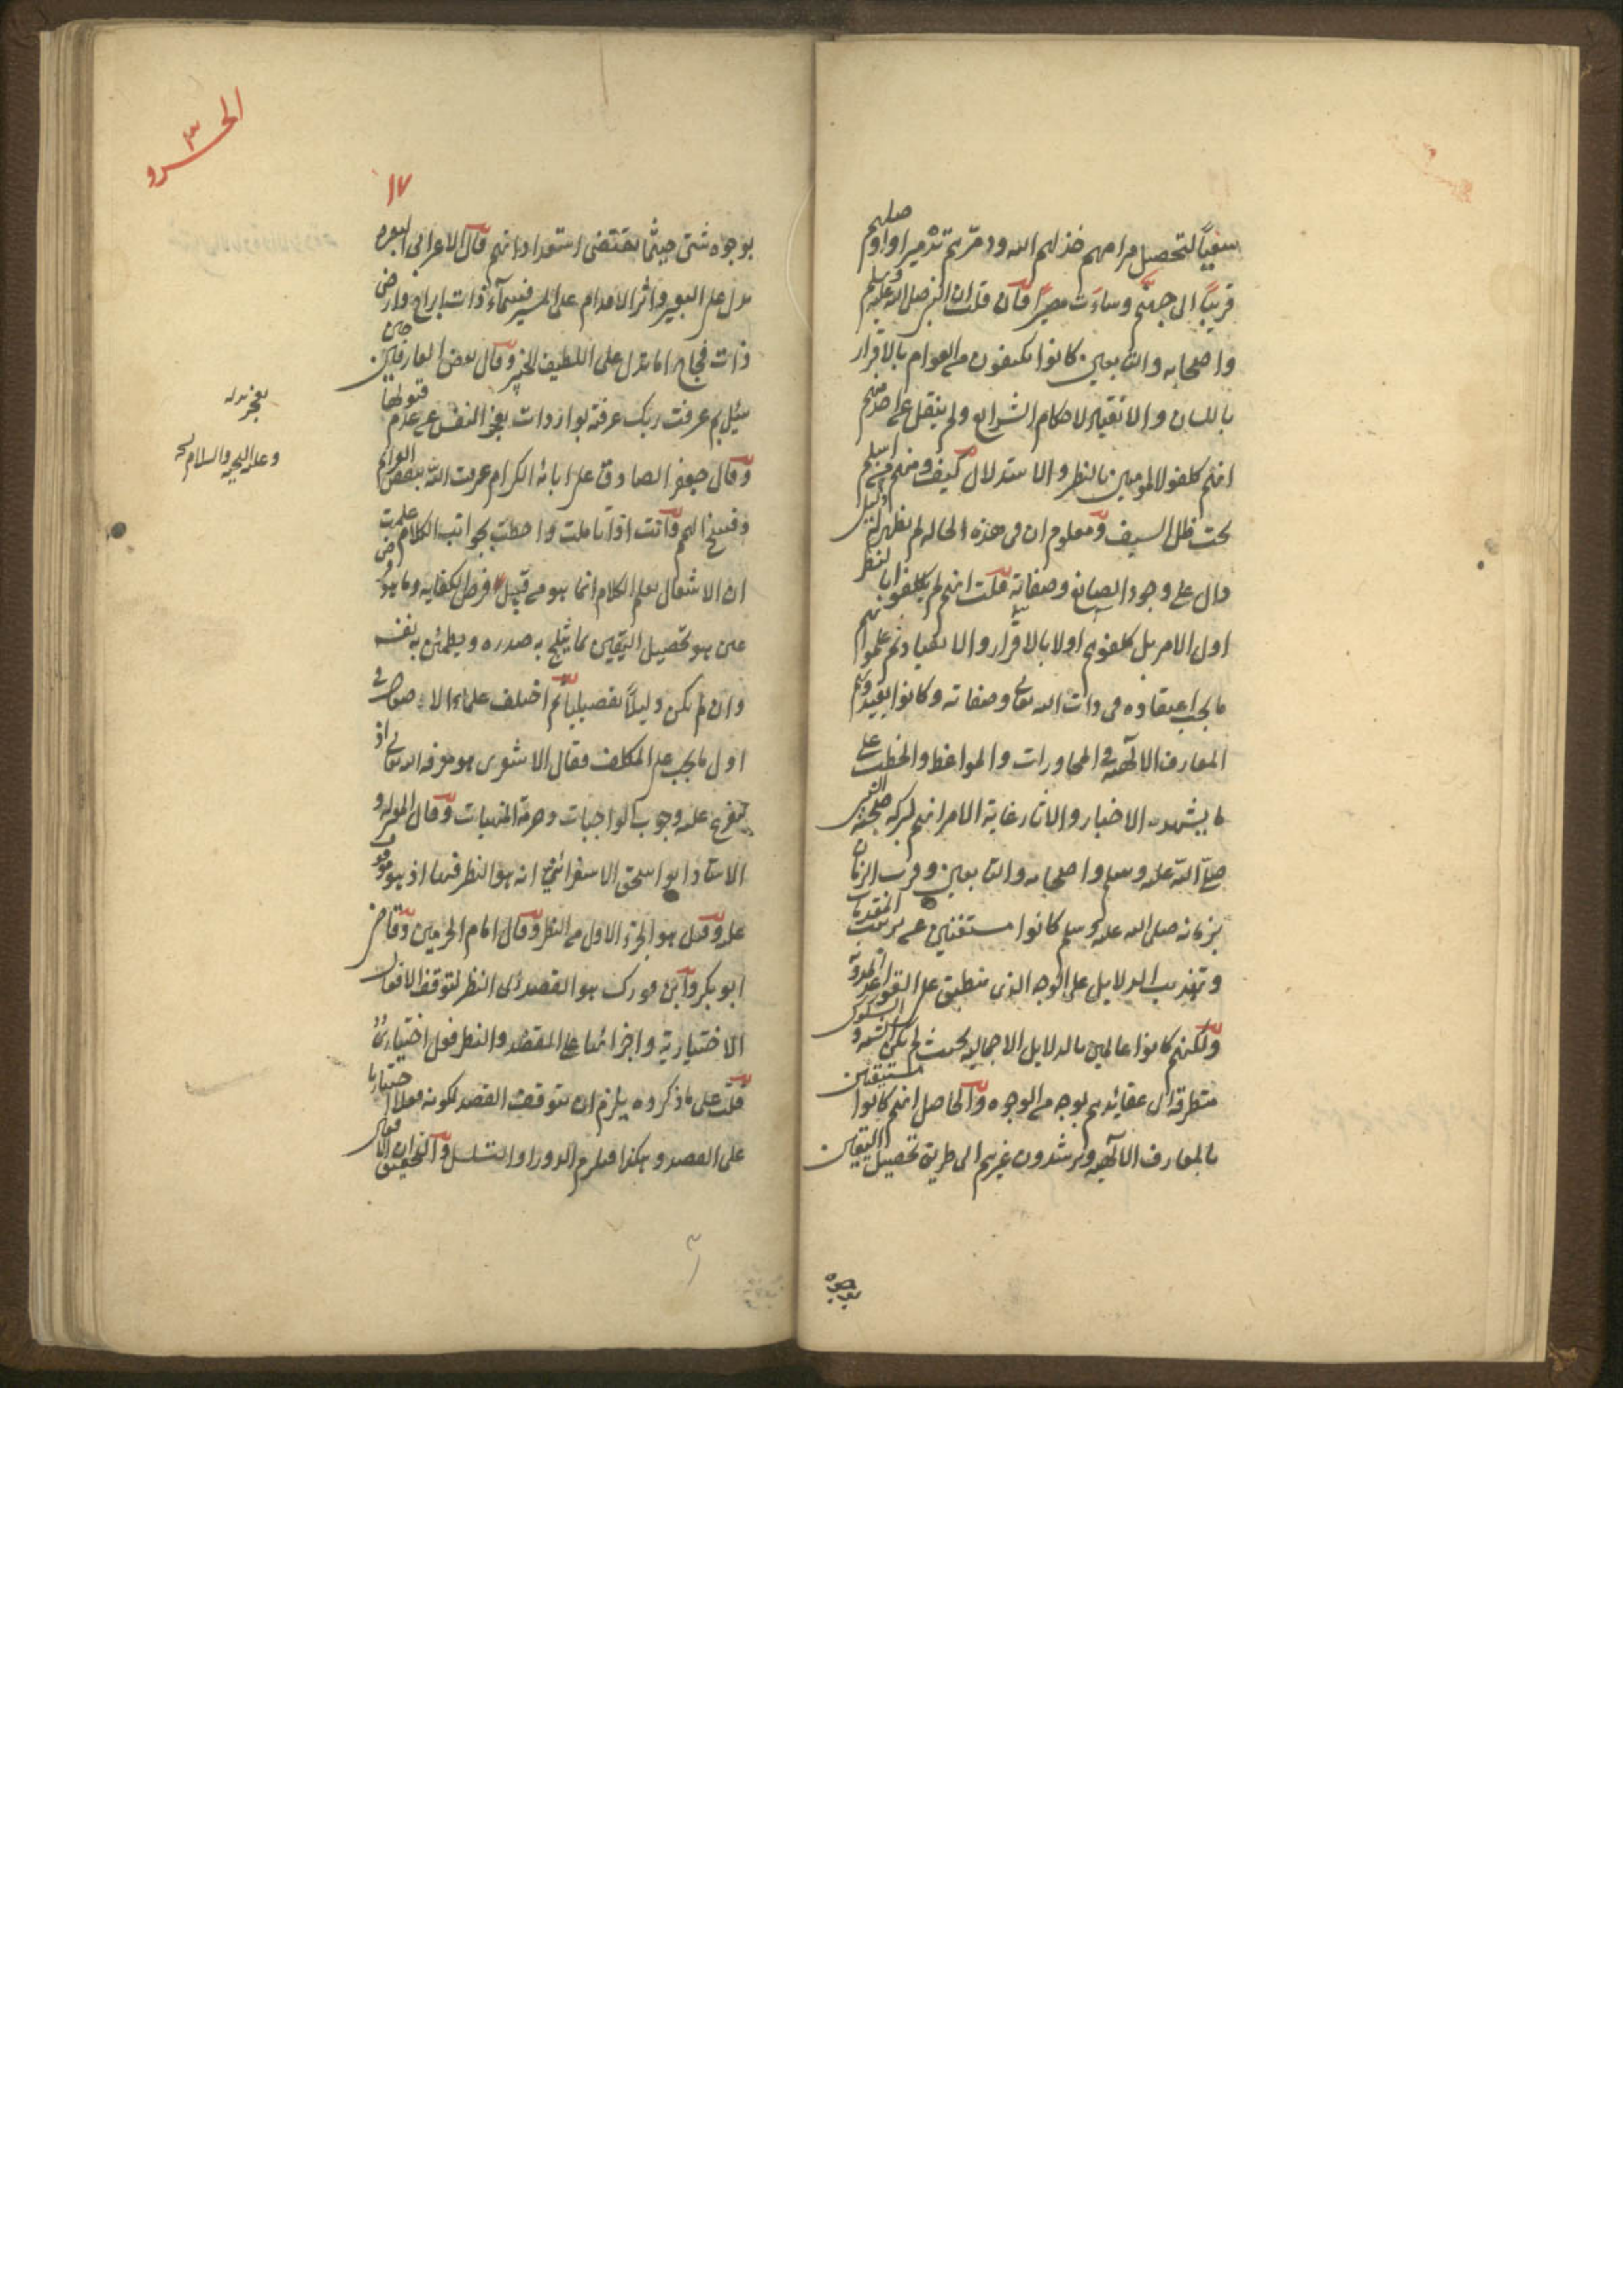 سعياً لتحصيل مرامهم خذلهم الله ودمّرهم تدميرا واوصلهم
قريباً الى جهنّم وساءَت مصيراً فان قلت ان النبي صلى الله عليه وسلم
واصحابه والتابعين كانوا يكتفون من العوام بالاقرار
باللسان والانقياد لاحكام الشرايع ولم ينقل عن احد منهم
انهم كلفوا المؤمنين بالنظر والاستدلال كيف ومنهم من اسلم
تحت ظل السيف ومعلوم ان فى هذه الحاله لم يظهر له دليل
دال على وجود الصانع وصفاته قلت انهم لم يكلفوا بالنظر
اول الامر بل كلفوهم اولا بالاقرار والانقياد ثم علموا
ما يجب اعتقاده فى ذات الله تعالى وصفاته وكانوا يفيدونهم
المعارف الالٰهية فى المحاورات والمواعظ والخطب على
ما يشهد به الاخبار والاثار غاية الامر انهم لبركة صحبة النبي
صلى الله عليه وسلم واصحابه والتابعين وقرب الزمان
بزمانه صلى الله عليه وسلم كانوا مستغنين عن ترتيب المقدمات
وتهذيب الدلايل على الوجه الذى ينطبق على القواعد المدونة
ولكنهم كانوا عالمين بالدلايل الاجمالية بحيث لم يكن الشبه والشكوك
متطرقة الى عقائدهم بوجه من الوجوه والحاصل انهم كانوا مستيقنين
بالمعارف الالٰهيه ويرشدون غيرهم الى طريق تحصيل اليقين
الجزء ٣
١٧
بوجوه شتى حيثما يقتضى استعداداتهم قال الاعرابى البعرة
تدل على البعير واثر الاقدام على المسير فسماء ذات ابراج وارض
ذات فجاج اما تدل على اللطيف الخبير وقال بعض العارفين حين
سئل بم عرفت ربك عرفته بواردات يعجز النفس عن عدم قبولها
وقال جعفر الصادق على ابائه الكرام عرفت الله بنقض العزايم
وفسخ الهمم وانت اذا تأملت واحطت بجوانب الكلام علمت
ان الاشتغال بعلم الكلام انما هو من قبيل فرض الكفايه وما هو فرض
عين هو تحصيل اليقين بما يثلج به صدره ويطمئن به نفسه
وان لم يكن دليلاً تفصيلياً ثم اختلف علماء الاصول فى
اول ما يجب على المكلف فقال الاشعرى هو معرفة الله تعالى اذ
يتفرع عليه وجوب الواجبات وحرمة المنهيات وقال المعتزله و
الاستاذ ابو اسحق الاسفرائنى انه هو النظر فيها اذ هو موقوف
عليه وقيل هو الجزء الاول من النظر وقال امام الحرمين وقاضى
ابو بكر وابن فورك هو القصد الى النظر لتوقف الافعال
الاختيارية واجزائها على القصد والنظر فعل اختيارى
قلت على ما ذكروه يلزم ان يتوقف القصد لكونه فعلا اختياريا
على القصد وهكذا فيلزم الدور او التسلسل والتحقيق ان الافعال